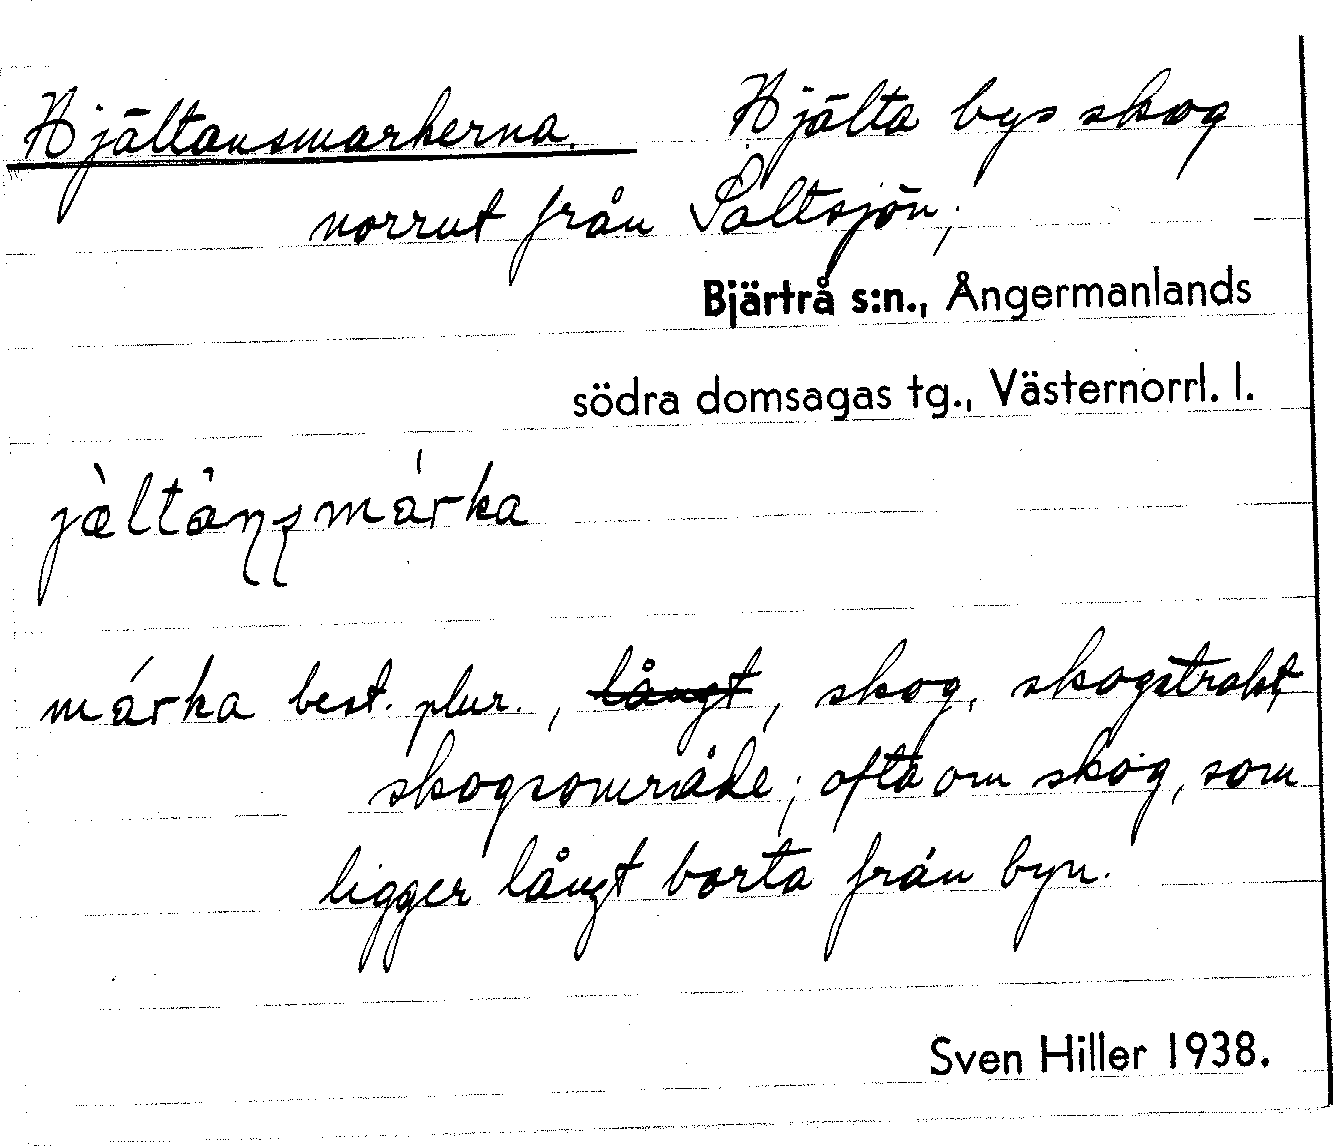 Hjältansmarkerna. Hjälta bys skog
norrut från Saltsjön;
Bjärtrå s:n., Ångermanlands
södra domsagas tg., Västernorrl. l.
márka best. plur., ~~långt~~, skog, skogstrakt,
skogsområde; ofta om skog, som
ligger långt borta från byn.
Sven Hiller 1938.